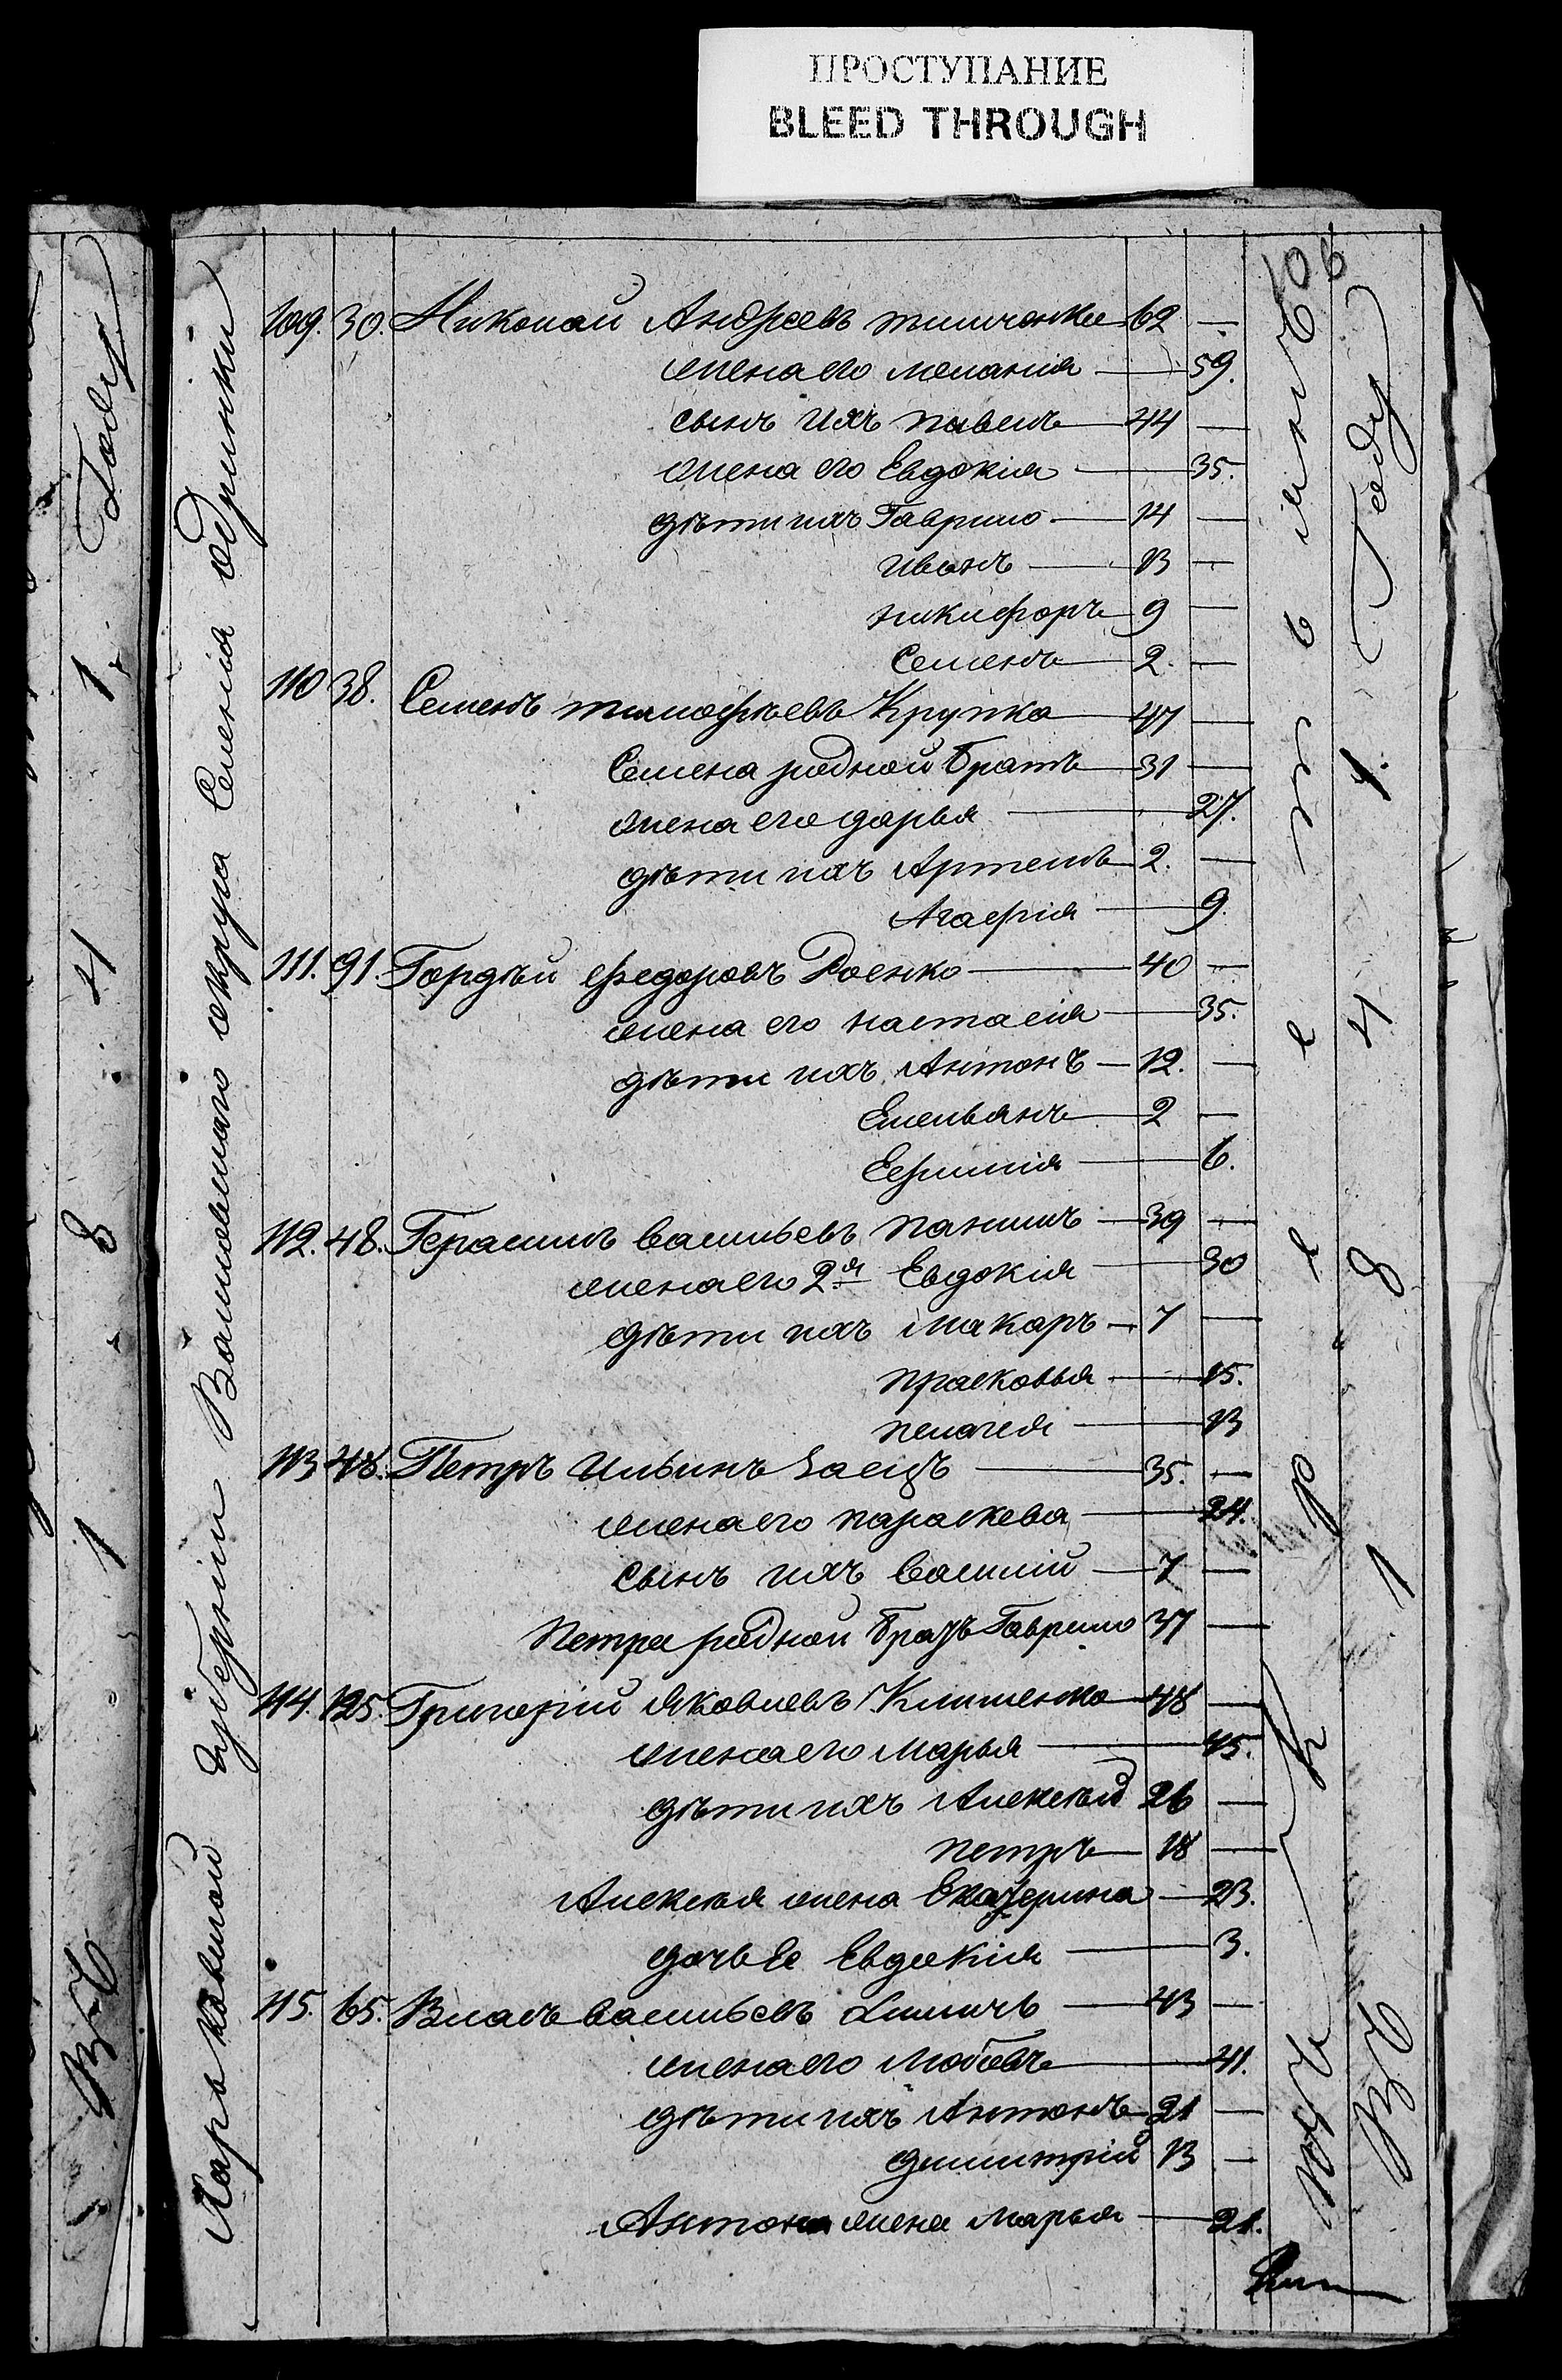 ПРОСТУПАНИЕ
BLEED THROUGH
106
109. 30. Николай Андреевъ 62 —
жена его меланія — 59.
сынъ ихъ павелъ — 44 —
жена его Евдокія — 35.
дѣти ихъ Гаврило — 14 —
иванъ — 13 —
никифоръ — 9 —
Семенъ — 2. —
110 38. Семенъ тимофѣевъ Крупка — 47 —
Семена родной братъ — 31 —
жена его дарья — 27.
дѣти ихъ Артемъ — 2. —
Агафія — 9.
111. 91. Гордѣй федоровъ Роенко — 40 —
жена его настасія — 35.
дѣти ихъ Антонъ — 12. —
Емельянъ — 2 —
Ефимія — 6.
112. 48. Герасимъ васильевъ — 39 —
жена его 2я Евдокія — 30
дѣти ихъ макаръ — 7 —
прасковья — 15.
пелагея — 13
113 48. Петръ Ильинъ Заецъ — 35. —
жена его параскева — 24.
сынъ ихъ василій — 7 —
Петра родной братъ Гаврило 37 —
114. 125. Григорій Яковлевъ Клименко — 48 —
жена его Марья — 45.
дѣти ихъ Алексѣй 26 —
петръ — 18 —
Алексѣя жена Екатерина — 23.
дочь Ее Евдокія — 3.
115. 65. Власъ васильевъ — 43 —
жена его Любовь — 41.
дѣти ихъ Антонъ — 21 —
димитрій 13 —
Антона жена марья — 21.
Харьковской губерніи Валковскаго округа Селенія одринки
1841 Году